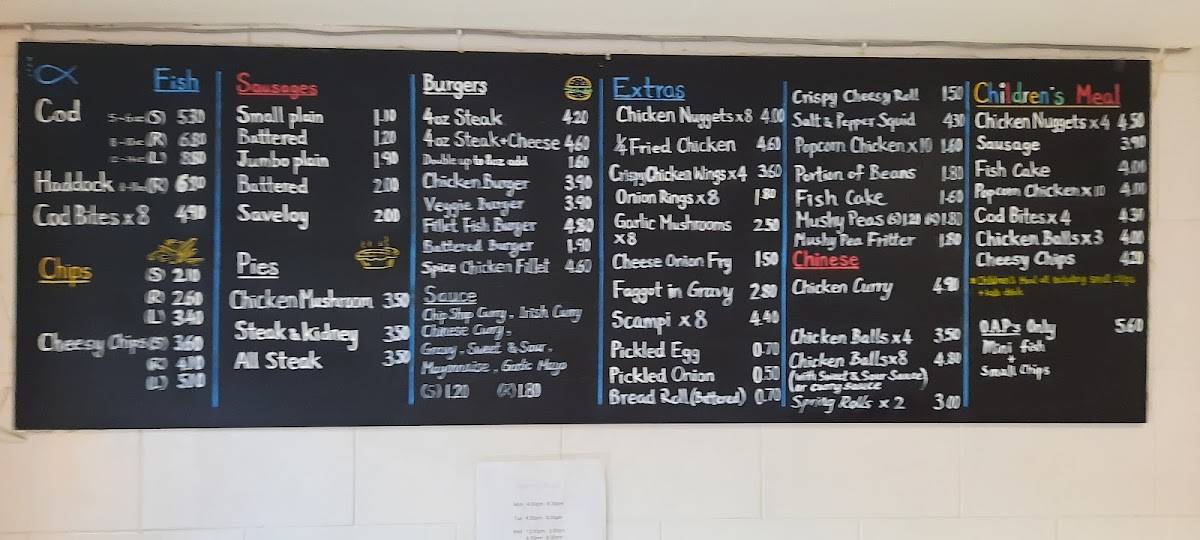 Fish
Cod (S) 5.30
(R) 6.80
(L) 8.80
Haddock (R) 6.80
Cod Bites x 8 4.90
Chips
(S) 2.10
(R) 2.60
(L) 3.40
Cheesy Chips (S) 3.60
(R) 4.10
(L) 5.00
Sausages
Small plain 1.10
Battered 1.20
Jumbo plain 1.90
Battered 2.00
Saveloy 2.00
Pies
Chicken Mushroom 3.50
Steak & Kidney 3.50
All Steak 3.50
Burgers
4oz Steak 4.20
4oz Steak+Cheese 4.60
Double up to 8oz add 1.60
Chicken Burger 3.90
Veggie Burger 3.90
Fillet Fish Burger 4.80
Battered Burger 1.90
Spice Chicken Fillet 4.60
Sauce
Chip Shop Curry, Irish Curry
Chinese Curry,
Gravy, Sweet & Sour,
Mayonnaise, Garlic Mayo
(S) 1.20 (R) 1.80
Extras
Chicken Nuggets x 8 4.00
¼ Fried Chicken 4.60
Crispy Chicken Wings x 4 3.60
Onion Rings x 8 1.80
Garlic Mushrooms 2.50
x 8
Cheese Onion Fry 1.50
Faggot in Gravy 2.80
Scampi x 8 4.40
Pickled Egg 0.70
Pickled Onion 0.50
Bread Roll (Buttered) 0.70
Crispy Cheesy Roll 1.50
Salt & Pepper Squid 4.30
Popcorn Chicken x 10 1.60
Portion of Beans 1.80
Fish Cake 1.60
Mushy Peas (S) 1.20 (R) 1.80
Mushy Pea Fritter 1.80
Chinese
Chicken Curry 4.90
Chicken Balls x 4 3.50
Chicken Balls x 8 4.80
(with Sweet & Sour Sauce)
or curry sauce
Spring Rolls x 2 3.00
Children's Meal
Chicken Nuggets x 4 4.50
Sausage 3.90
Fish Cake 4.00
Popcorn Chicken x 10 4.00
Cod Bites x 4 4.30
Chicken Balls x 3 4.00
Cheesy Chips 4.20
* Children's Meal all including small chips
+ kids drink
OAPs Only 5.60
Mini fish
+
Small Chips